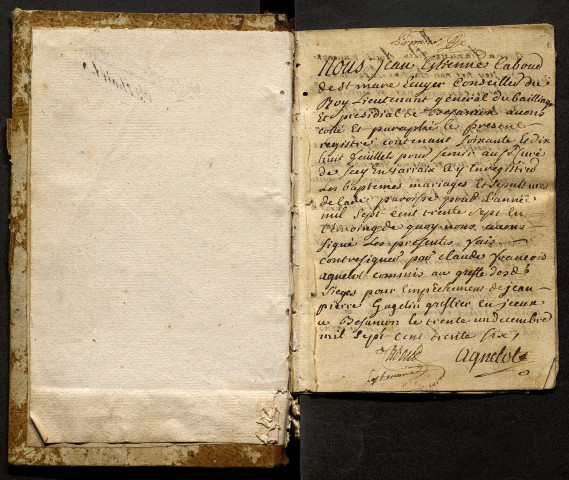 Nous Jean Etienne Caboud
de St mare Ecuyer Conseiller du
Roy Lieutenant général du bailliage
Et presidial de Besancon avons
cotté Et paraphé le present
registre contenant soixante Et dix
huit feuillet pour servir au Sr curé
de Scey En Varraix a y Enregistrer
Les baptemes mariages Et sepultures
de lad paroisse pend L'année
mil sept cent trente sept En
temoing de quoy nous avons
signé Les presentes fais
contresigner par claude françois
agnelot commis au greffe desd
sieges pour l'empechement de jean
pierre Gagelin greffier En jceux
a Besancon le trente un decembre
mil sept cent trente six
agnelot